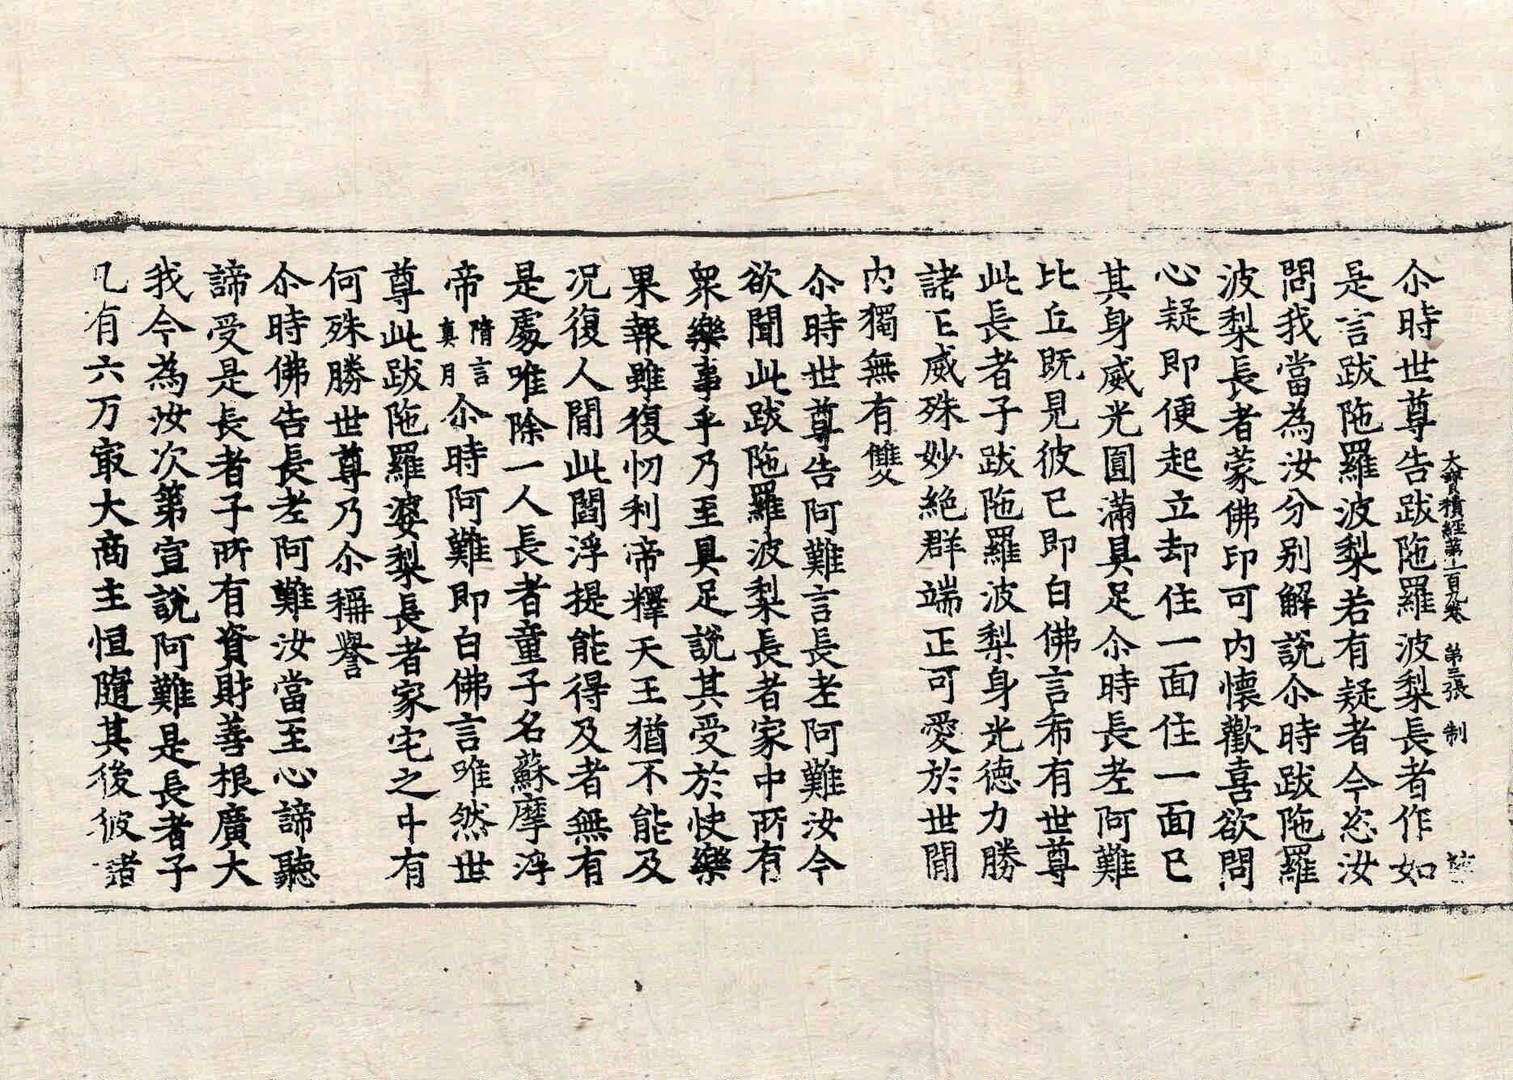 大寶積經第一百九卷 第三張 制
尒時世尊告跋陁羅波梨長者作如
是言跋陁羅波梨若有疑者今恣汝
問我當為汝分别解說尒時跋陁羅
波梨長者蒙佛印可內懷歡喜欲問
心疑即便起立却住一面住一面已
其身威光圓滿具足尒時長老阿難
比丘既見彼已即白佛言希有世尊
此長者子跋陁羅波梨身光德力勝
諸王威殊妙絶群端正可愛於世間
內獨無有雙
尒時世尊告阿難言長老阿難汝今
欲聞此跋陁羅波梨長者家中所有
衆樂事乎乃至具足說其受於快樂
果報雖復忉利帝釋天王猶不能及
况復人間此閻浮提能得及者無有
是處唯除一人長者童子名蘇摩浮
帝隋言真月尒時阿難即白佛言唯然世
尊此跋陁羅婆梨長者家宅之中有
何殊勝世尊乃尒稱譽
尒時佛告長老阿難汝當至心諦聽
諦受是長者子所有資財善根廣大
我今為汝次第宣說阿難是長者子
凡有六万㝡大商主恒隨其後彼諸